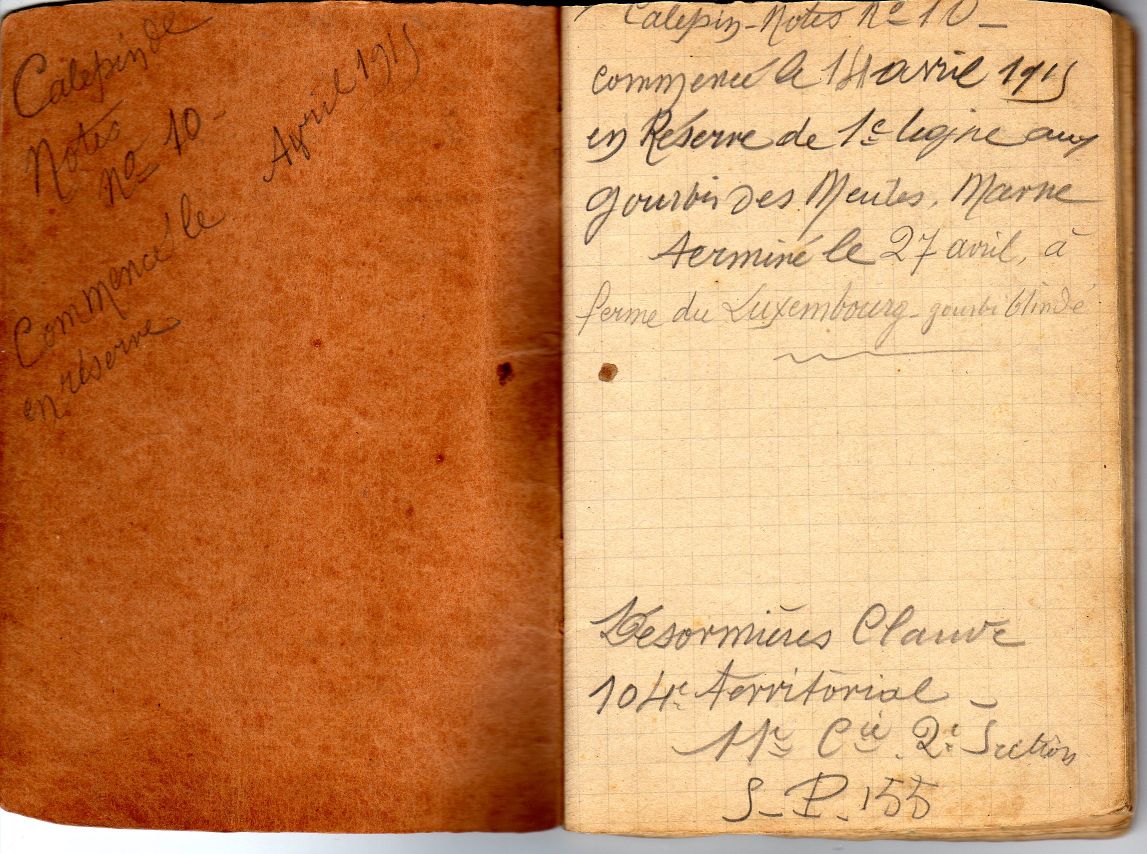 Calepin de
Notes
No 10 -
Commencé le Avril 1915
en réserve
Calepin-Notes No 10 -
commencé le 14 avril 1915
en Réserve de 1e ligne aux
gourbis des Meutes, Marne
terminé le 27 avril, à
ferme du Luxembourg - gourbi blindé
Desormières Claude
104e territorial -
11e Cie. 2e Section
S-P. 155